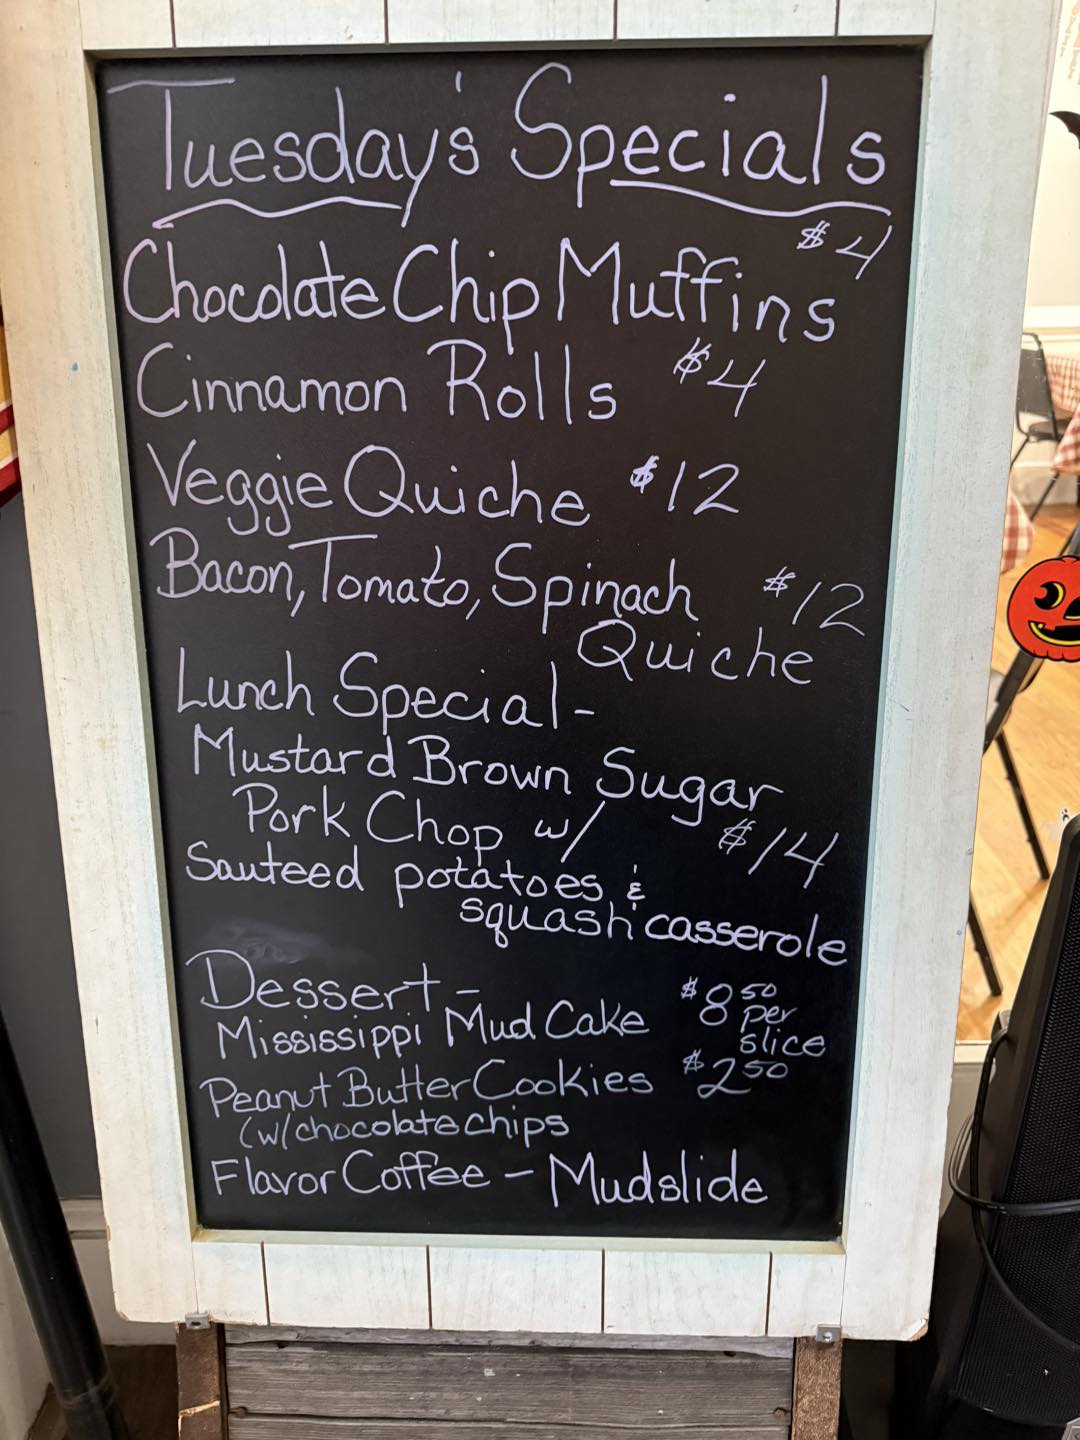 Tuesday's Specials
$4
Chocolate Chip Muffins
Cinnamon Rolls $4
Veggie Quiche $12
Bacon, Tomato, Spinach $12
Quiche
Lunch Special-
Mustard Brown Sugar
Pork Chop w/ $14
Sauteed potatoes &
squash casserole
Dessert-
Mississippi Mud Cake $8 50 per
slice
Peanut Butter Cookies $2 50
(w/chocolate chips
Flavor Coffee - Mudslide